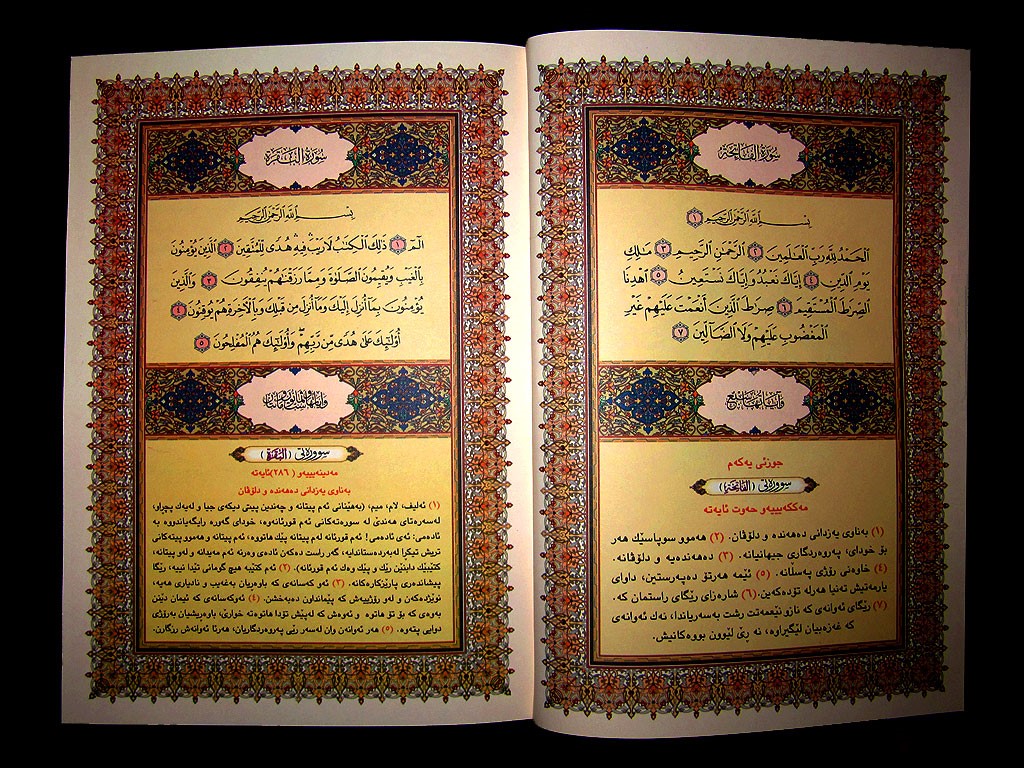 سُورَةُ الْفَاتِحَةِ
بِسْمِ اللَّهِ الرَّحْمَٰنِ الرَّحِيمِ ١
الْحَمْدُ لِلَّهِ رَبِّ الْعَالَمِينَ ٢ الرَّحْمَٰنِ الرَّحِيمِ ٣ مَالِكِ
يَوْمِ الدِّينِ ٤ إِيَّاكَ نَعْبُدُ وَإِيَّاكَ نَسْتَعِينُ ٥ اهْدِنَا
الصِّرَاطَ الْمُسْتَقِيمَ ٦ صِرَاطَ الَّذِينَ أَنْعَمْتَ عَلَيْهِمْ غَيْرِ
الْمَغْضُوبِ عَلَيْهِمْ وَلَا الضَّالِّينَ ٧
وَآيَاتُهَا سَبْعٌ
جوزئی یەکەم
سوورەتی (الفَاتِحَة)
مەککەیییەو حەوت ئایەتە
(١) بەناوی یەزدانی دەهەندە و دلۆڤان. (٢) هەموو سوپاسێك هەر
بۆ خودای، پەروەردگاری جیهانیانە. (٣) دەهەندەیە و دلۆڤانە.
(٤) خاوەنی رۆژی پەسڵانە. (٥) ئێمە هەرتۆ دەپەرستین، داوای
یارمەتیش تەنیا هەرلە تۆدەکەین. (٦) شارەزای رێگای راستمان کە.
(٧) رێگای ئەوانەی کە نازو نێعمەتت رشت بەسەریاندا، نەك ئەوانەی
کە غەزەبیان لێگیراوە، نە ڕێ لێوون بووەکانیش.
سُورَةُ الْبَقَرَةِ
بِسْمِ اللَّهِ الرَّحْمَٰنِ الرَّحِيمِ
الٓمٓ ١ ذَٰلِكَ الْكِتَابُ لَا رَيْبَ ۛ فِيهِ ۛ هُدًى لِلْمُتَّقِينَ ٢ الَّذِينَ يُؤْمِنُونَ
بِالْغَيْبِ وَيُقِيمُونَ الصَّلَاةَ وَمِمَّا رَزَقْنَاهُمْ يُنْفِقُونَ ٣ وَالَّذِينَ
يُؤْمِنُونَ بِمَا أُنْزِلَ إِلَيْكَ وَمَا أُنْزِلَ مِنْ قَبْلِكَ وَبِالْآخِرَةِ هُمْ يُوقِنُونَ ٤
أُولَٰئِكَ عَلَىٰ هُدًى مِنْ رَبِّهِمْ ۖ وَأُولَٰئِكَ هُمُ الْمُفْلِحُونَ ٥
سوورەتی (البَقَرَة)
مەدینەیییەو (٢٨٦)ئایەتە
بەناوی یەزدانی دەهەندە و دلۆڤان
(١) ئەلیف، لام، میم، (بەهێنانی ئەم پیتانە و چەندین پیتی دیکەی جیا و لەیەك پچڕاو،
لەسەرەتای هەندێ لە سورەتەکانی ئەم قورئانەوە، خودای گەورە رایگەیاندووە بە
ئادەمی: ئەی ئادەمی! ئەم قورئانە لەم پیتانە پێك هاتووە، ئەم پیتانە و هەموو پیتەکانی
تریش تێکڕا لەبەردەستاندایە، گەر راست دەکەن ئادەی وەرنە ئەم مەیدانە و لەو پیتانە،
کتێبێك دابنێن رێك و پێك وەك ئەم قورئانە). (٢) ئەم کتێبە هیچ گومانی تێدا نییە، رێگا
پیشاندەری پارێزکارەکانە. (٣) ئەو کەسانەی کە باوەریان بەغەیب و نادیاری هەیە،
نوێژدەکەن و لەو رۆژییەش کە پێمانداون دەبەخشن. (٤) ئەوکەسانەی کە ئیمان دێنن
بەوەی کە بۆ تۆ هاتووە و ئەوەش کە لەپێش تۆدا هاتوە تە خوارێ، باوەریشیان بەرۆژی
دوایی پتەوە. (٥) هەر ئەوانەن وان لەسەر رێی پەروەردگاریان، هەرتا ئەوانەش رزگارن.